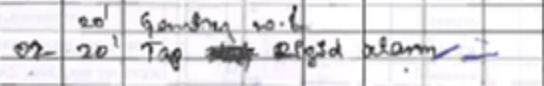 20' Gantry w.l
02- 20' Top Rigid alarm